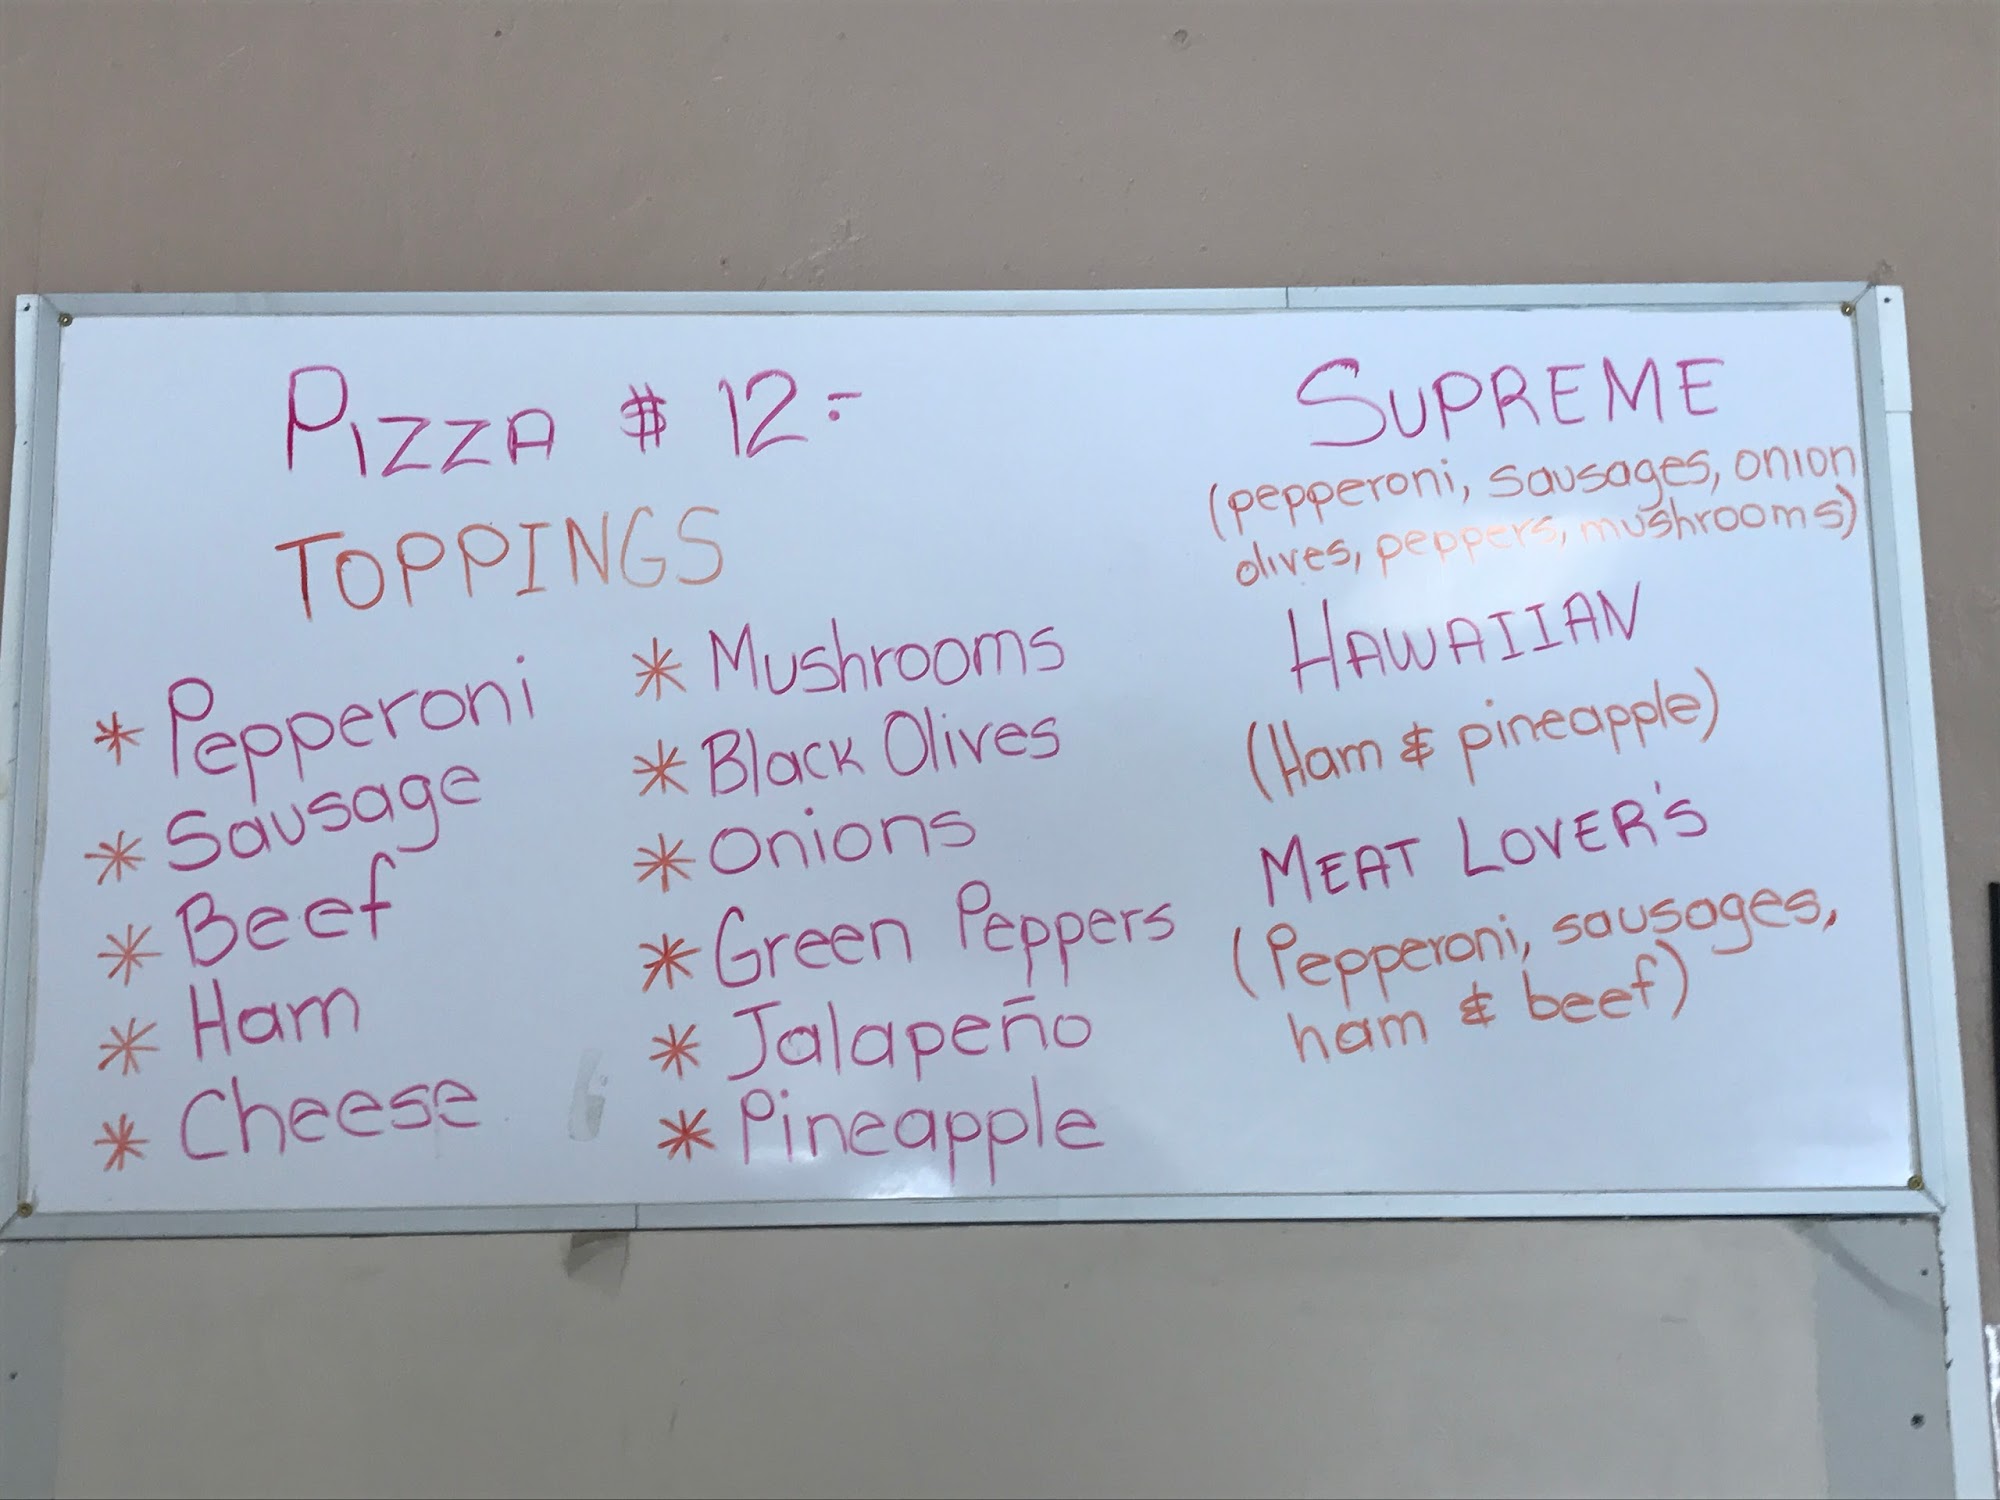 PIZZA $ 12.-
TOPPINGS
* Pepperoni
* Sausage
* Beef
* Ham
* Cheese
* Mushrooms
* Black Olives
* Onions
* Green Peppers
* Jalapeño
* Pineapple
SUPREME
(pepperoni, sausages, onion
olives, peppers, mushrooms)
HAWAIIAN
(Ham & pineapple)
MEAT LOVER'S
(Pepperoni, sausages,
ham & beef)